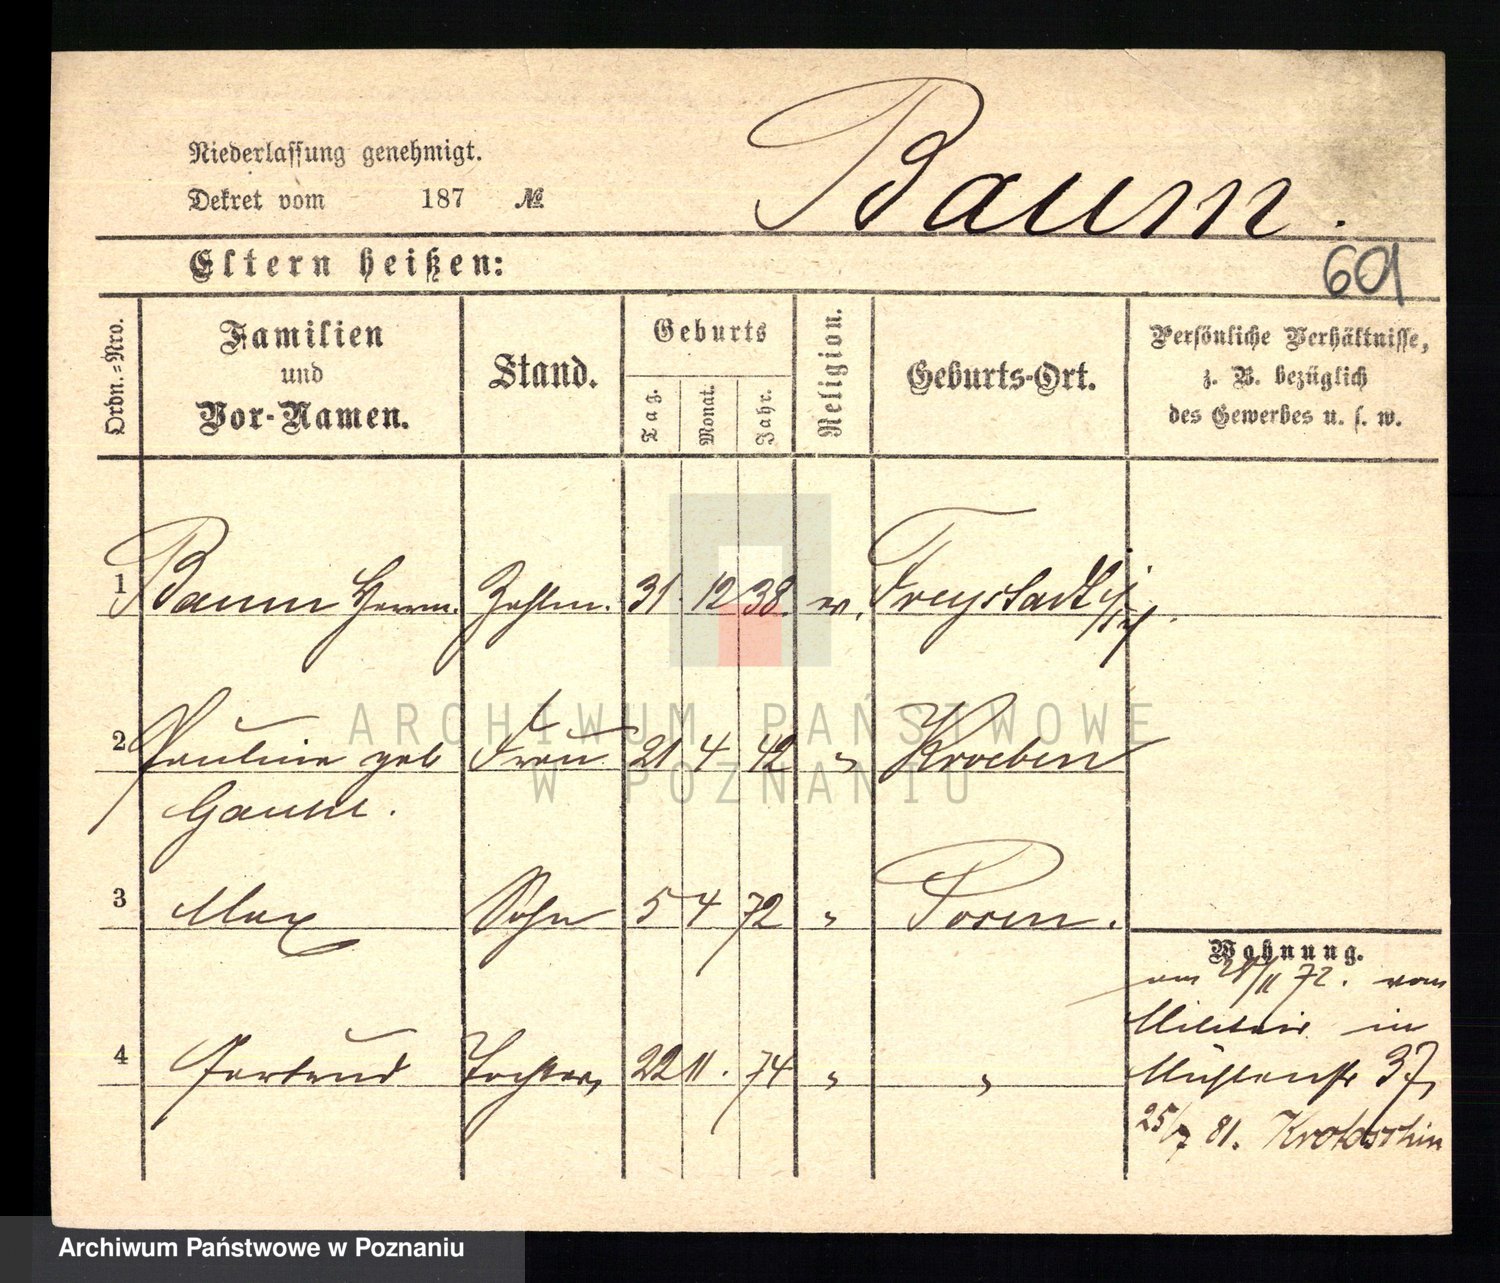 Niederlassung genehmigt.
Dekret vom 187 №
Baum.
Eltern heißen:
601
Ordn.=Nro.
Familien
und
Vor-Namen.
Stand.
Geburts
Tag.
Monat.
Jahr.
Religion.
Geburts-Ort.
Persönliche Verhältnisse,
z. B. bezüglich
des Gewerbes u. s. w.
1 Baum Herrm. Zahlm. 31. 12 38. ev. Freystadt i/Sch.
2 Pauline geb Frau 21 4 42 " Kroeben
3 Max Sohn 5 4 72 " Posen.
Wohnung.
am /11 72. vom
Militair in
Mühlenstr 37,
25/7 81. Krotoschin
4 Gertrud Tochter, 22 11. 74 " "
ARCHIWUM PAŃSTWOWE
W POZNANIU
Archiwum Państwowe w Poznaniu